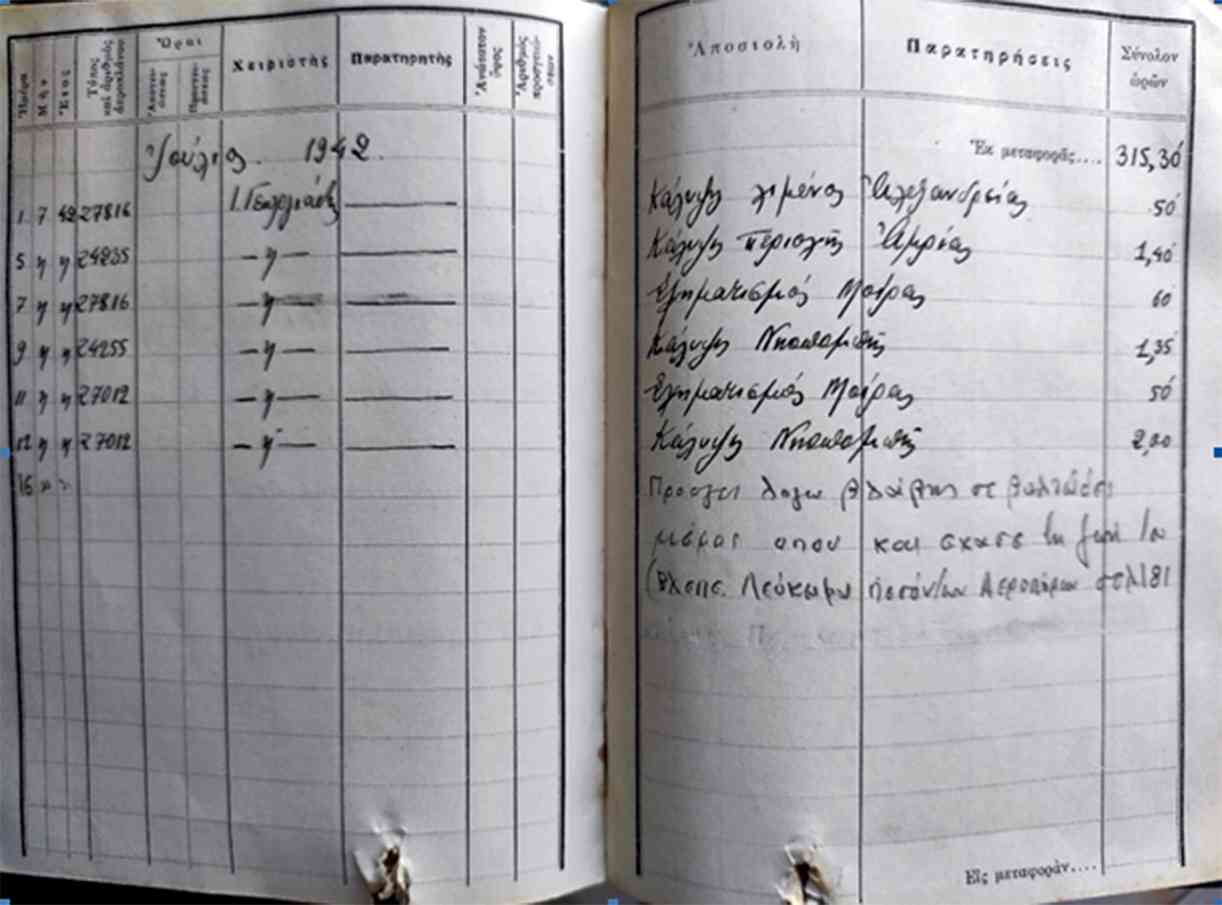 Ἡμέρα Μὴν Ἔτος Τύπος καὶ ἀριθμὸς ἀεροπλάνου Ὧραι Χειριστὴς Παρατηρητὴς
Ἰούλιος. 1942.
1 7 42 27816 Ι. ———
5 η η 24235 —η— ———
7 η η 27816 —η— ———
9 η η 24255 —η— ———
11 η η 27012 —η— ———
12 η η 27012 —η— ———
16 " "
Ἀποστολὴ Παρατηρήσεις Σύνολον ὡρῶν
Ἐκ μεταφορᾶς.... 315,30
Κάλυψις λιμένος Ἀλεξανδρείας 50
Κάλυψις περιοχῆς Ἀμρίας 1,40
Σχηματισμὸς Μοίρας 60
Κάλυψις Νηοπομπῆς 1,35
Σχηματισμὸς Μοίρας 50
Κάλυψις Νηοπομπῆς 2,00
λογω βλαβης σε βαλτώδες
μέρος οπου και εχασε τη ζωή του
(Βλεπε. Λεύκωμα πεσόντων Αεροπόρων σελ181
Εἰς μεταφοράν....